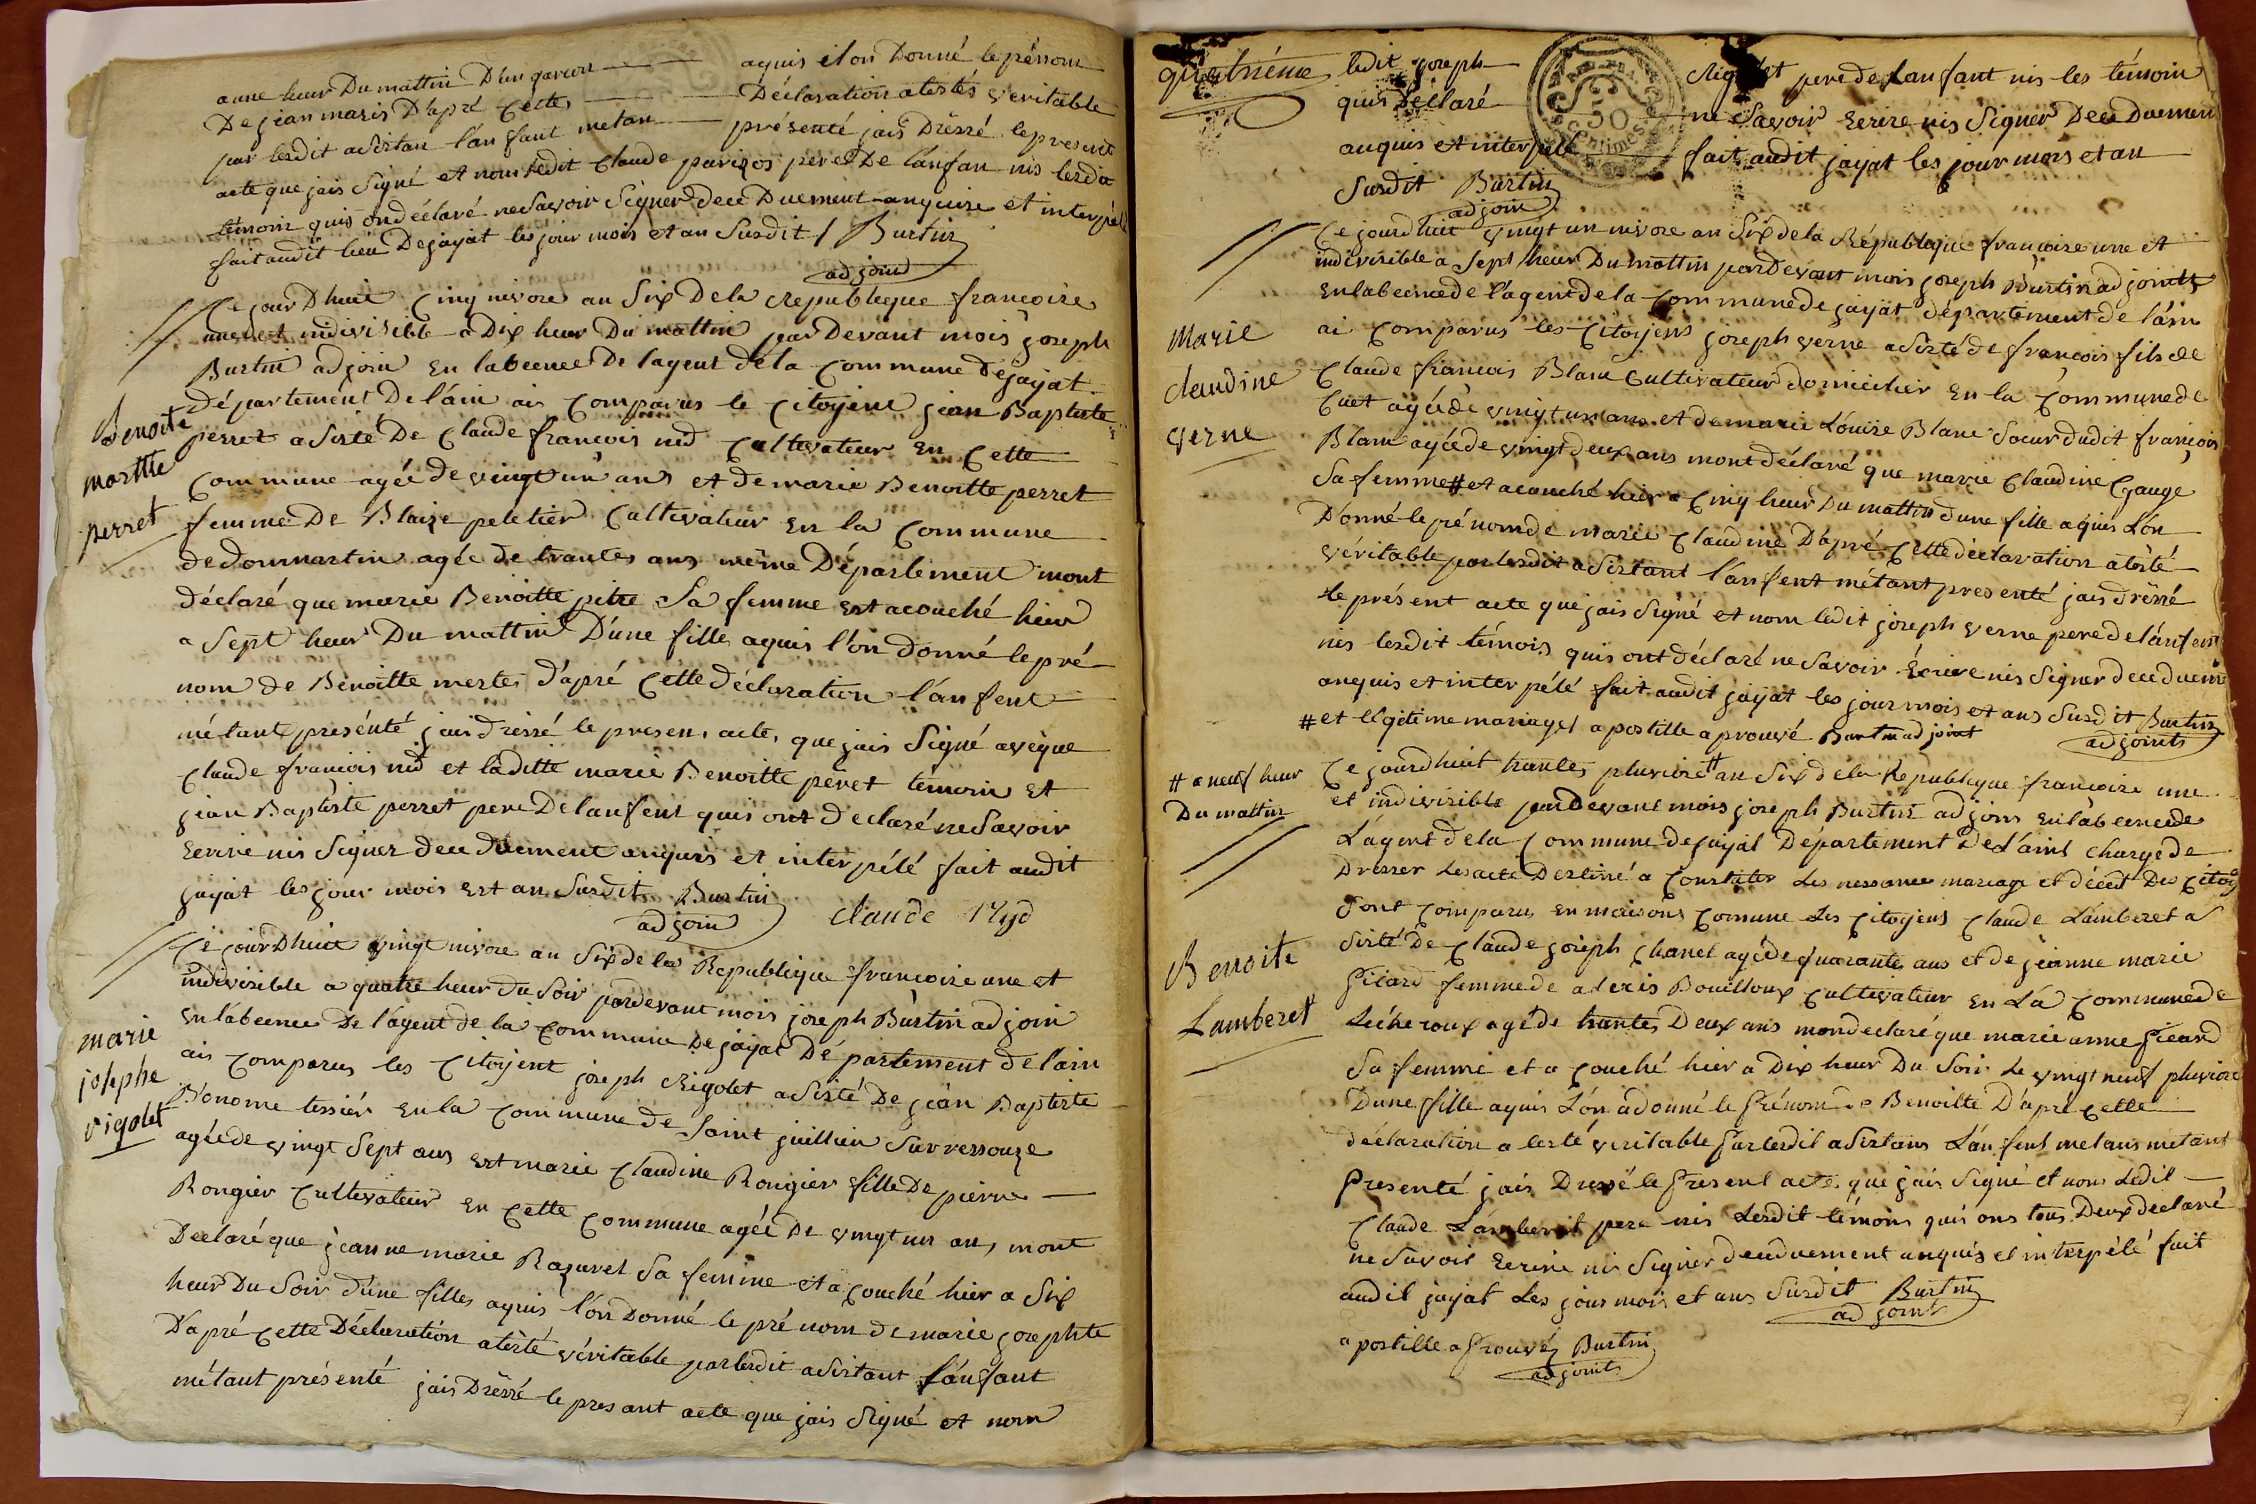 a une heur Du mattin D'un garcon aquis il on Donné le prénom
De jean maris D'apré cette Déclaration atestés veritable
par lesdit asistan l'an fant metan présenté jais Dréssé le present
acte que jais Signé et nom ledit Claude parizos pere De l'anfan nis lesdit
témoin quis on déclaré ne Savoir Signer dece Duement anquire et interpélé
fait audit lieu De jayat les jour mois et an Susdit / Burtin
adjoind
Ce jour D huit Cinq nivose au Six De la république francoise
une et indivisible a Dix heur Du mattin par Devant mois joseph
Burtin adjoin en labcence De l'agent dela Commune De jayat
département De l'ain ais Comparus le Citoyent jean Baptiste
Benoite
marttte
perret
perret asisté De Claude francois nid Cultivateur En Cette
Commune agée de vingt un ans et de marie Benoitte perret
femme De Blaize peletier Cultivateur En la Commune
de dommartin agée de trantes ans même Département mont
déclaré que marie Benoitte pitre Sa femme est acouché hier
a Sept heur Du mattin D'une fille aquis l'on donné le pré
nom de Benoitte mertes d'apré Cette déclaration l'anfent
métant présenté jais dréssé le presen acte, que jais Signé avèque
Claude francois nid et laditte marie Benoitte péret temoin et
jean Baptiste perret pere De lanfent quis ont déclaré ne Savoir
Ecrire nis Signer dece duement anquis et interpélé fait audit
jayat les jour mois est an Susdit Burtin
adjoin Claude Nyd
Ce jour D huit vingt nivose au Six de la République francoise une et
indivisible a quatre heur du Soir par devant mois joseph Burtin adjoin
En labcence De l'agent de la Commune De jayat Département de l'ain
marie
josephe
rigolet
ais Comparus les Citoyent joseph Rigolet asisté De jean Baptiste
Bonome tessiér En la Commune de Saint juillien Sur ressouze
agée de vingt Sept ans est marie Claudine Rongier fille De pierre
Rongier Cultivateur en Cette Commune agée De vingt un an, mont
Déclaré que jeanne marie Razurel Sa femme et a Couché hier a Six
heur Du Soir d'une filles aquis l'on Donné le pré nom de marie josephte
D'apré Cette Déclaration atesté véritable par lesdit asistant l'anfant
métant présenté jais Dréssé le presant acte que jais Signé et nom
quatriéme
ledit joseph Rigolet pere de Lanfant nis les témoin
quis déclaré ne Savoir Ecrire nis Signer Dece Duemen
anquis et interpellé fait audit jayat les jour mois et an
Susdit Burtin
adjoin
Ce jourd huit vingt un nivose an Six dela République francoise une et
indivisible a Sept heur Du mattin par Devant mois joseph Burtin adjoints
En labcence de l'agent de la Commune de jayat département de l'ain
Marie
claudine
verne
ai Comparus les Citoyens joseph verne asisté de francois fils de
Claude francois Blanc Cultivateur domicilier en la Commune de
Cuet agée de vingt un ans et de marie Louise Blanc Soeur dudit francois
Blanc agée de vingt deux ans mont déclaré que marie Claudine Gauge
Sa femme # et acouché hier a Cinq heur Du mattin d'une fille aquis L'on
Donné le prénom de marie Claudine D'apré Cette déclaration atesté
véritable par lesdit asistant l'anfent métant presenté jais dréssé
le présent acte que jais Signé et nom ledit joseph verne pere de l'anfent
nis lesdit témois quis ont déclaré ne Savoir Ecrire nis Signer dece duem
anquis et interpélé fait audit jayat les jour mois et ans Susdit Burtin
adjoints
# et légitime mariage / a postille aprouvé Burtin adjoint
# a neuf heur
Du mattin
Ce jourdhuit trantes pluviose # an Six dela République francoise une
et indivisible par Devant mois joseph Burtin adjoin en labcence de
L'agent de la Commune de jayat Département De L'aint charge de
Dresser Les acte Destiné a Constater Les nessance mariage et décest Des Citoy
Benoite
Lamberet
Sont Comparus en maisons Comune Les Citoyens Claude Lamberet a
Sisté De Claude joseph Chanel agée de quarante ans et de jeanne marie
Picard femme de alexis Bouilloux Cultivateur en La Commune de
Lécheroux agé de trantes Deux ans mon declaré que marie anne Picard
Sa femme et a Couché hier a Dix heur Du Soir Le vingt neuf pluviose
D'une fille aquis L'on a donné le Prénom De Benoitte D'apré Cette
déclaration a testé veritable Par lesdit asistans L'an fent metans metant
Presenté jais Dressé le Present acte que jais Signé et nom Ledit
Claude Lamberet pere nis Lesdit témoin quis ons tous Deux declaré
ne Savoir Ecrire nis Signer deceduement anquis et interpélé fait
audit jayat Les jour mois et ans Susdit Burtin
adjoint
a postille aprouvé Burtin
adjoints